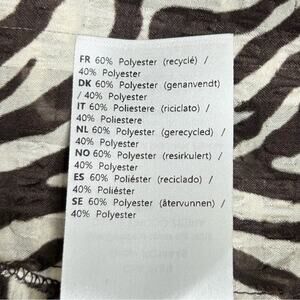 FR 60% Polyester (recyclé) /
40% Polyester
DK 60% Polyester (genanvendt)
/ 40% Polyester
IT 60% Poliestere (riciclato) /
40% Poliestere
NL 60% Polyester (gerecycled) /
40% Polyester
NO 60% Polyester (resirkulert) /
40% Polyester
ES 60% Poliéster (reciclado) /
40% Poliéster
SE 60% Polyester (återvunnen) /
40% Polyester